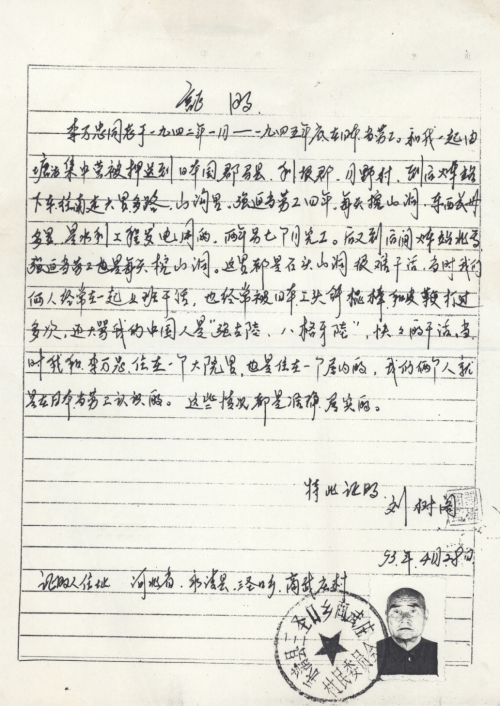 证明
李万忠同志于一九四二年一月——一九四五年底在日本当劳工。和我一起由
塘沽集中营被押送到日本国郡名县,利根郡,月野村,到后火车站
下车往南走大里多路,山沟里,强迫当劳工四年,每天挖山洞,东西
多里,是水利工程发电用的,两年另七个月完工。后又到
强迫当劳工也是每天挖山洞。这里都是石头山洞很难干活,当时我们
俩人经常在一起上班干活,也经常被日本工头用棍棒和皮鞭打过
多次,还大骂我的中国人是“,八格",快快的干活,当
时我和李万忠住在一个大院里,也是住在一个屋内的,我们俩个人就
是在日本当劳工认识的。这些情况都是准确属实的。
特此证明
刘树阁
93年4月28日
证明人住址 河北省,县,三圣口乡,南武庄村
县三圣口乡南武庄
村民委员会